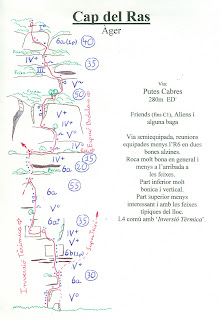 Cap del Ras
Ager
Via:
Putes Cabres
280m ED-
Friends (fins C1), Aliens i
alguna baga
Via semiequipada, reunions
equipades menys l'R6 en dues
bones alzines.
Roca molt bona en general i
menys a l'arribada a
les feixes.
Part inferior molt
bonica i vertical.
Part superior menys
interessant i amb les feixes
típiques del lloc.
L4 comú amb 'Inversió Tèrmica'.
6a (1p)
40
IV+
35
IV+
III
V+
50
V
IV+
35
IV
20
V
6a
55
V
6a+
55
V
IV+
6b(1p)
6a
30
V
Inversió Tèrmica